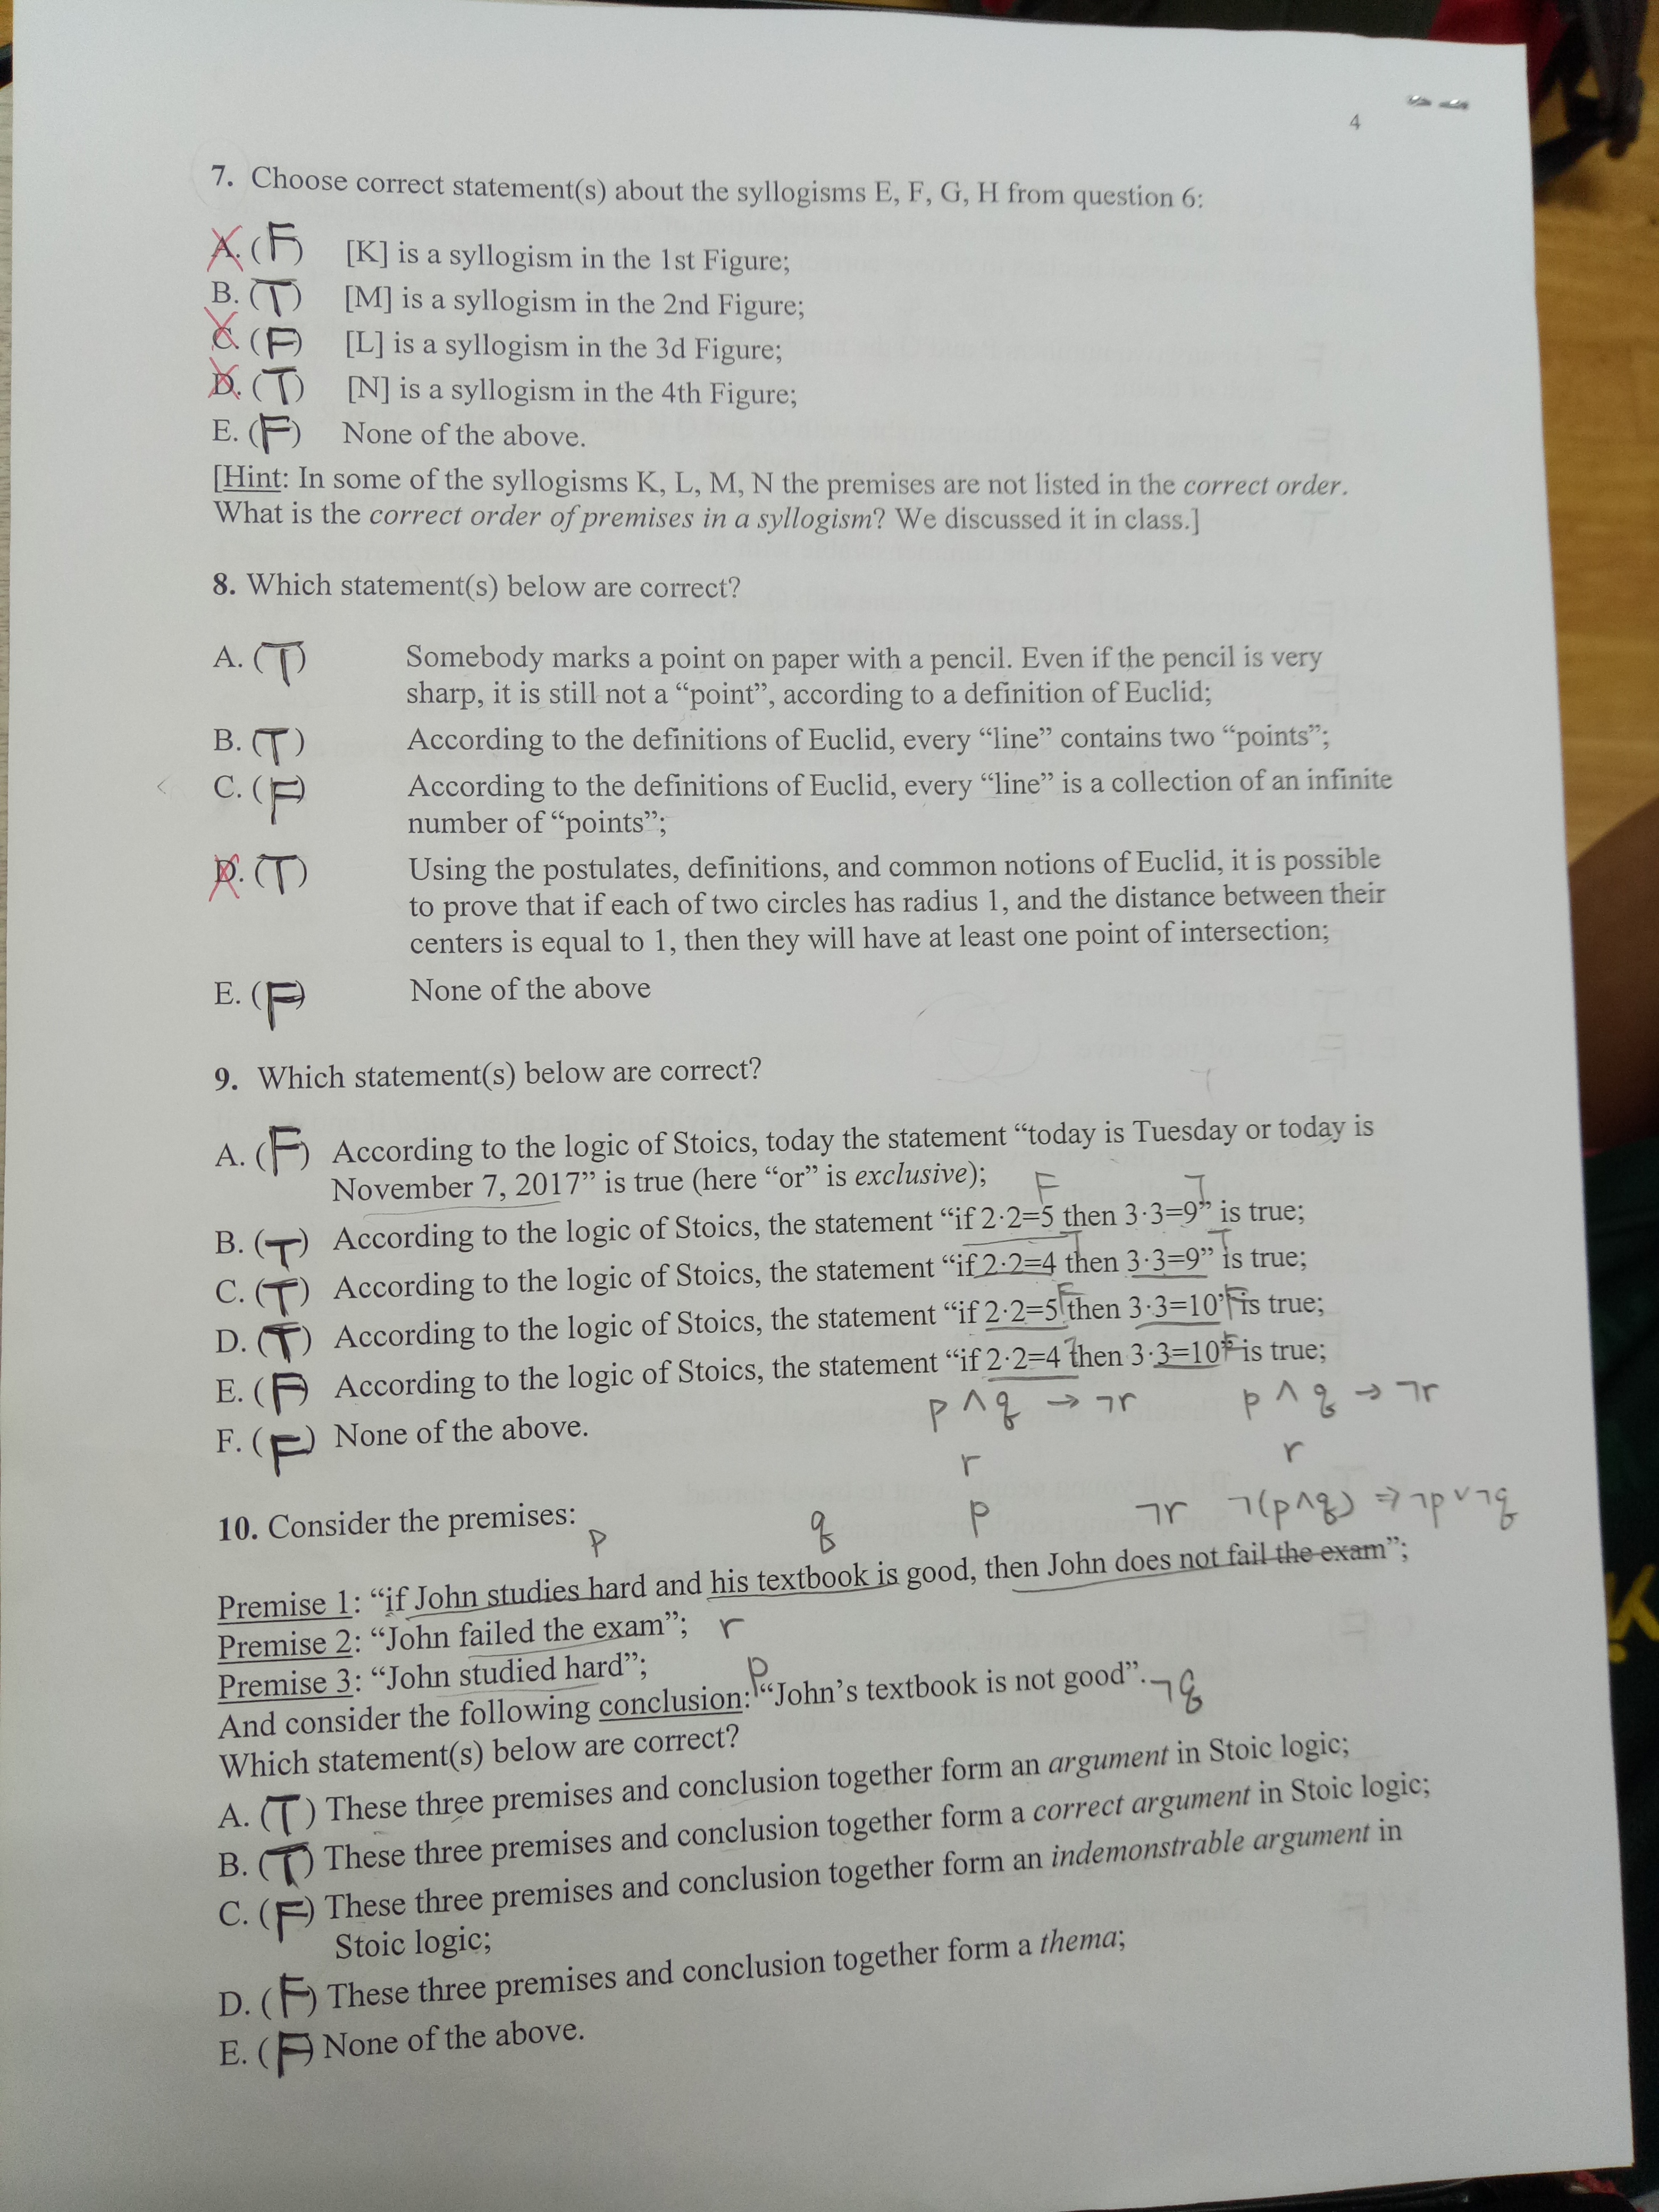 4
7. Choose correct statement(s) about the syllogisms E, F, G, H from question 6:
A. (F) [K] is a syllogism in the 1st Figure;
B. (T) [M] is a syllogism in the 2nd Figure;
C. (F) [L] is a syllogism in the 3d Figure;
D. (T) [N] is a syllogism in the 4th Figure;
E. (F) None of the above.
[Hint: In some of the syllogisms K, L, M, N the premises are not listed in the correct order.
What is the correct order of premises in a syllogism? We discussed it in class.]
8. Which statement(s) below are correct?
A. (T) Somebody marks a point on paper with a pencil. Even if the pencil is very
sharp, it is still not a “point”, according to a definition of Euclid;
B. (T) According to the definitions of Euclid, every “line” contains two “points”;
C. (F) According to the definitions of Euclid, every “line” is a collection of an infinite
number of “points”;
D. (T) Using the postulates, definitions, and common notions of Euclid, it is possible
to prove that if each of two circles has radius 1, and the distance between their
centers is equal to 1, then they will have at least one point of intersection;
E. (F) None of the above
9. Which statement(s) below are correct?
A. (F) According to the logic of Stoics, today the statement “today is Tuesday or today is
November 7, 2017” is true (here “or” is exclusive);
F T
B. (T) According to the logic of Stoics, the statement “if 2·2=5 then 3·3=9” is true;
T T
C. (T) According to the logic of Stoics, the statement “if 2·2=4 then 3·3=9” is true;
F F
D. (T) According to the logic of Stoics, the statement “if 2·2=5 then 3·3=10” is true;
T F
E. (F) According to the logic of Stoics, the statement “if 2·2=4 then 3·3=10” is true;
p ∧ q → ¬r p ∧ q → ¬r
F. (F) None of the above.
r r
p ¬r ¬(p∧q) ⇒ ¬p ∨ ¬q
10. Consider the premises:
p q
Premise 1: “if John studies hard and his textbook is good, then John does not fail the exam”;
Premise 2: “John failed the exam”; r
Premise 3: “John studied hard”; p
And consider the following conclusion: “John’s textbook is not good”. ¬q
Which statement(s) below are correct?
A. (T) These three premises and conclusion together form an argument in Stoic logic;
B. (T) These three premises and conclusion together form a correct argument in Stoic logic;
C. (F) These three premises and conclusion together form an indemonstrable argument in
Stoic logic;
D. (F) These three premises and conclusion together form a thema;
E. (F) None of the above.